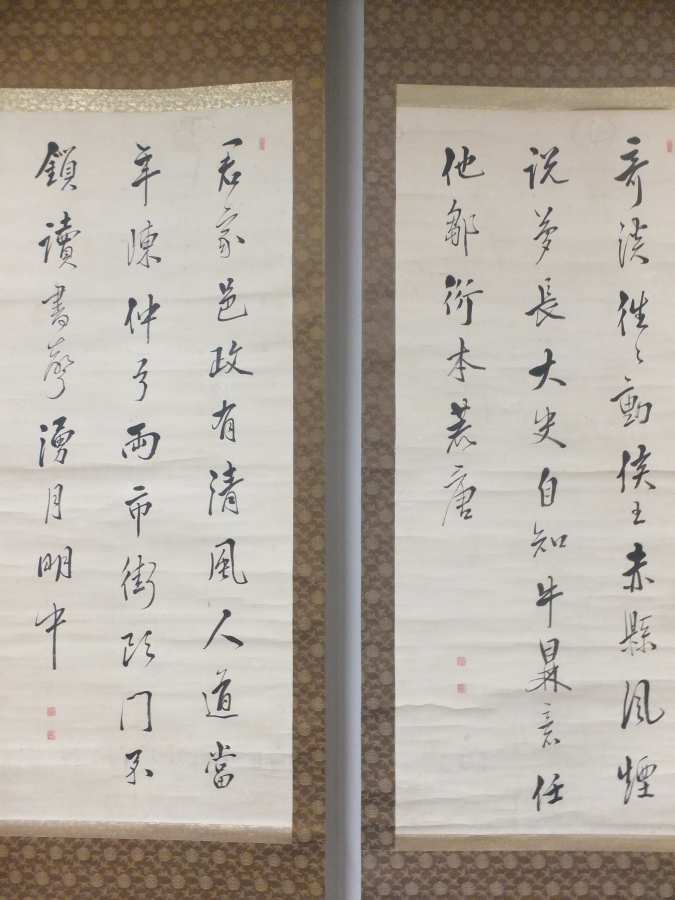 奇談往々動侯王赤縣風煙
説夢長大史自知牛鼎意任
他鄒衍本荒唐
君家邑政有清風人道當
年陳仲弓兩市街頭門不
鎖讀書聲湧月明中